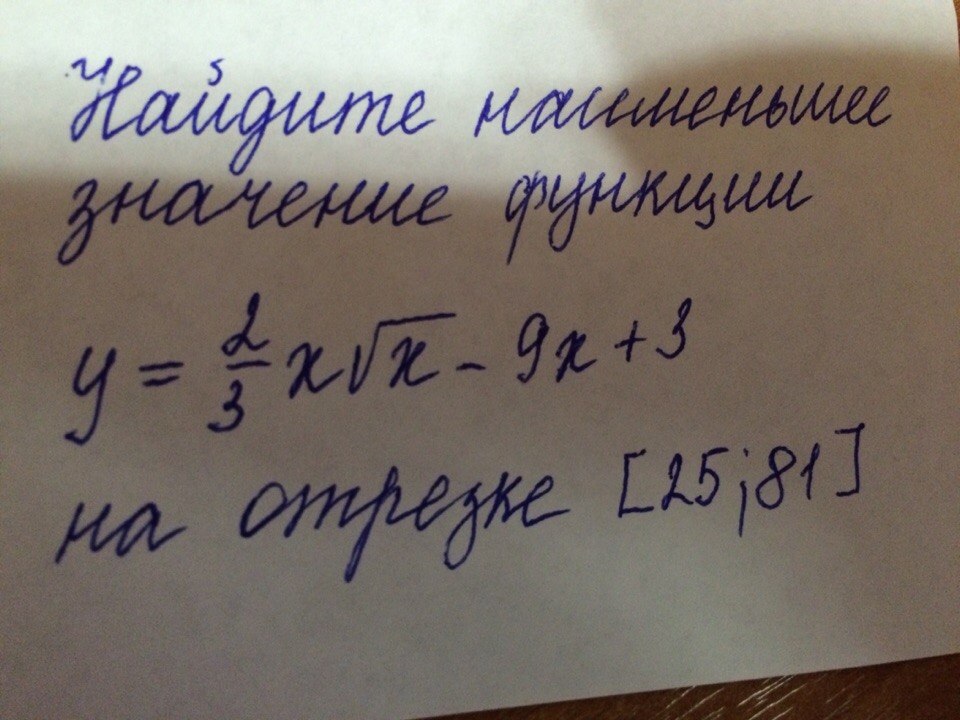 Найдите наименьшее
значение функции
y = 2/3 x√x - 9x + 3
на отрезке [25;81]